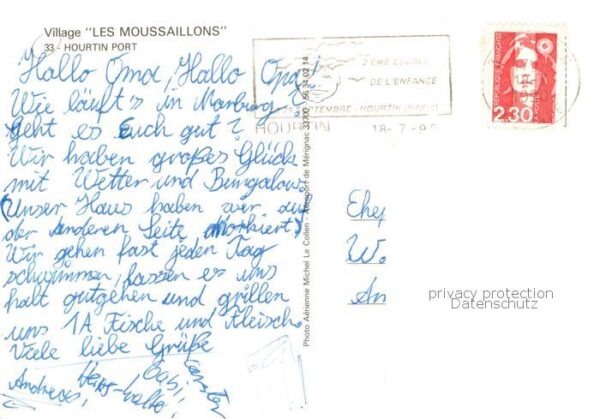 Village "LES MOUSSAILLONS"
33 - HOURTIN PORT
Hallo Oma, Hallo Opa!
Wie läuft's in Marburg,
geht es Euch gut?
Wir haben großes Glück
mit Wetter und Bungalow.
(Unser Haus haben wir auf
der anderen Seite markiert)
Wir gehen fast jeden Tag
schwimmen, lassen es uns
halt gutgehen und grillen
uns 1A Fische und Fleisch.
Viele liebe Grüße
Andreas,
Gabi
Carsten
2EME ESCALE
DE L'ENFANCE
SEPTEMBRE - HOURTIN
HOURTIN
18-7-9
REPUBLIQUE FRANÇAISE
2.30
Photo Aérienne Michel Le Collen - Aéroport de Mérignac
Ehe
W
An
privacy protection
Datenschutz